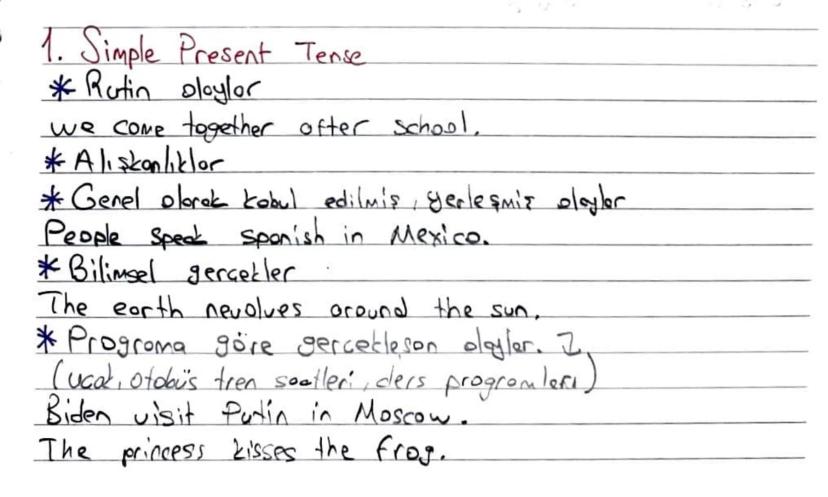 1. Simple Present Tense
* Rutin olaylar
we come together after school.
* Alışkanlıklar
* Genel olarak kabul edilmiş, yerleşmiş olaylar
People speak spanish in Mexico.
* Bilimsel gercekler
The earth revolves around the sun.
* Programa göre gercekleşon olaylar.
(ucak, otobüs tren saatleri, ders programları)
Biden visit Putin in Moscow.
The princess kisses the frog.